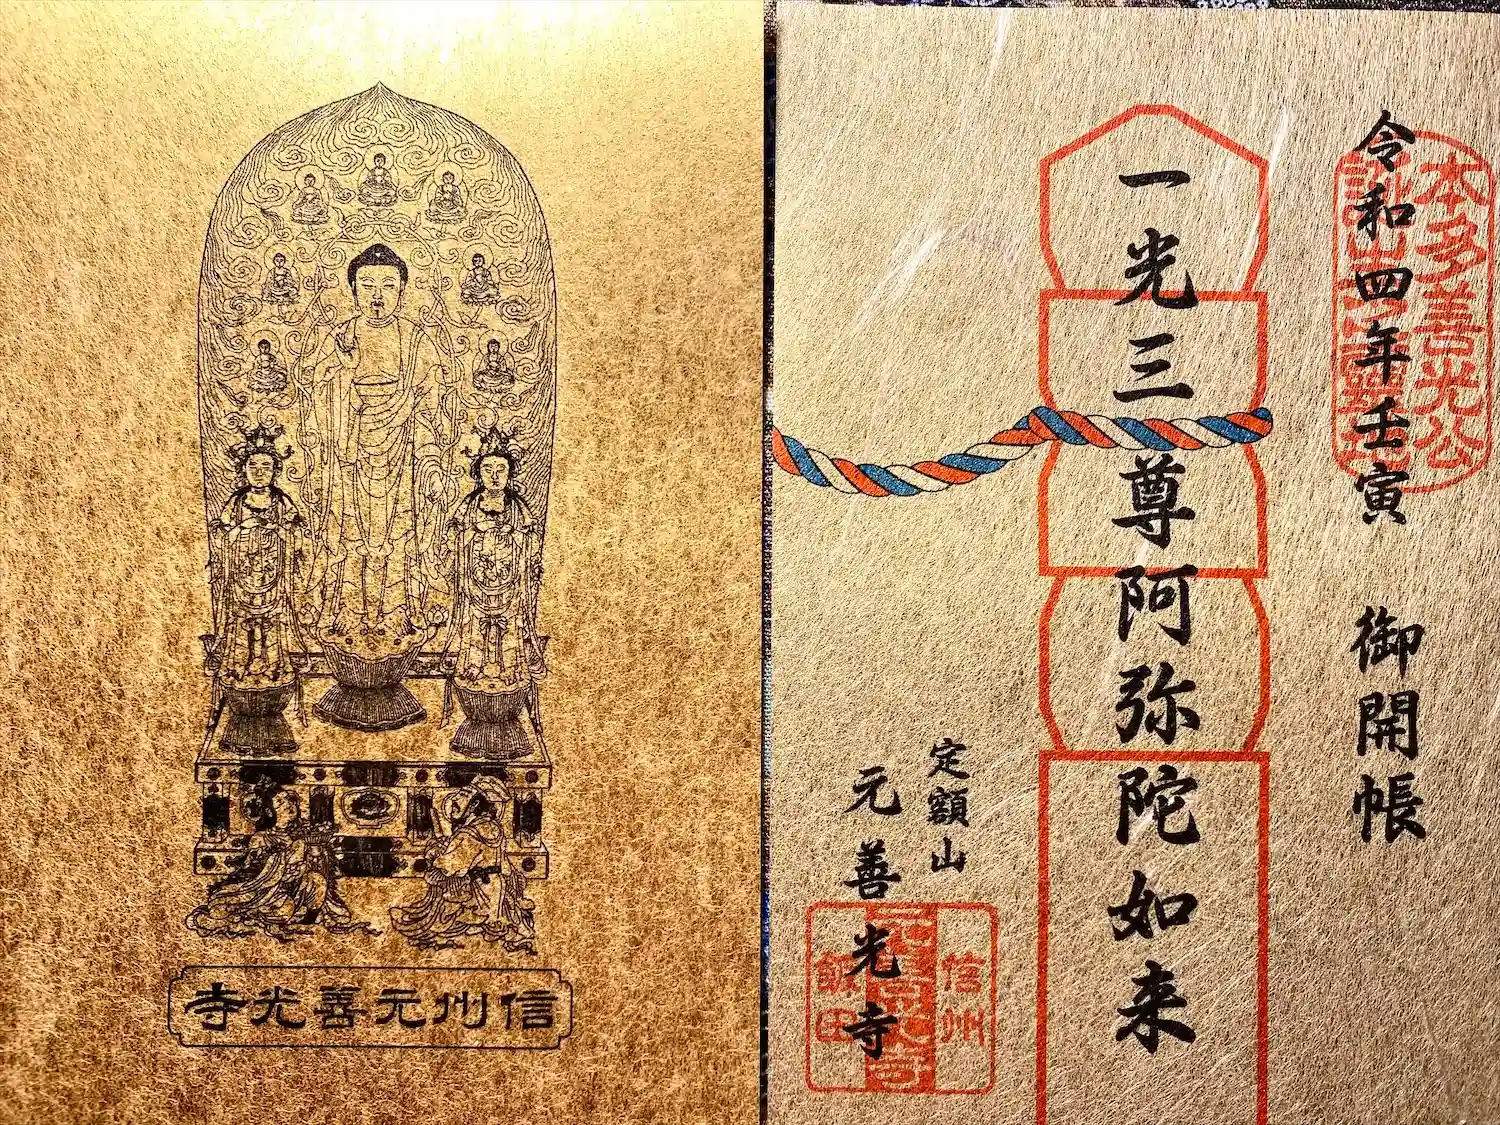 信州元善光寺
令和四年壬寅 御開帳
本多善光公
一光三尊阿弥陀如来
定額山
元善光寺
信州
元善光寺
飯田